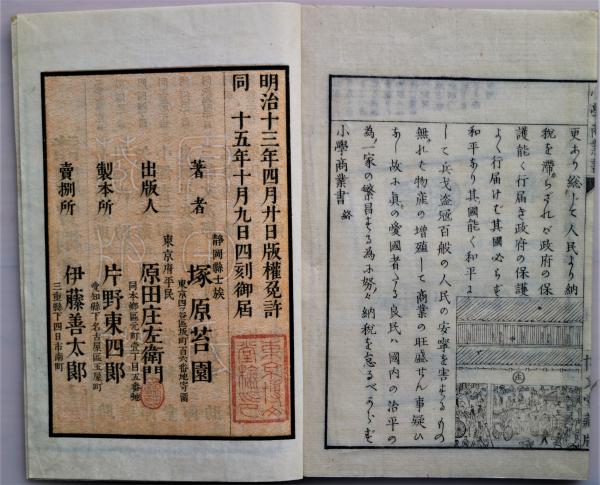 更あり総して人民より納
税を滞らざれが政府の保
護能く行届き政府の保護
よく行届けむ其國必らむ
和平あり其國能く和平に
して兵戈盗冠百般の人民の安寧を害するもの
無れむ物産の増殖して商業の旺盛せん事疑ひ
あし故に眞の愛國者たる良民ハ國内の治平の
為一家の繁昌する為に努々納税を怠るべからず
小學商業書 終
明治十三年四月廿日版權免許
同 十五年十月九日四刻御届
著者
靜岡縣士族
塚原苔園
東京四谷區坂町百六番地寄留
出版人
東京府平民
原田庄左衛門
同本郷區元町壹丁目五番地
製本所
片野東四郎
愛知縣下名古屋區玉屋町
賣捌所
伊藤善太郎
三重縣下四日市南町